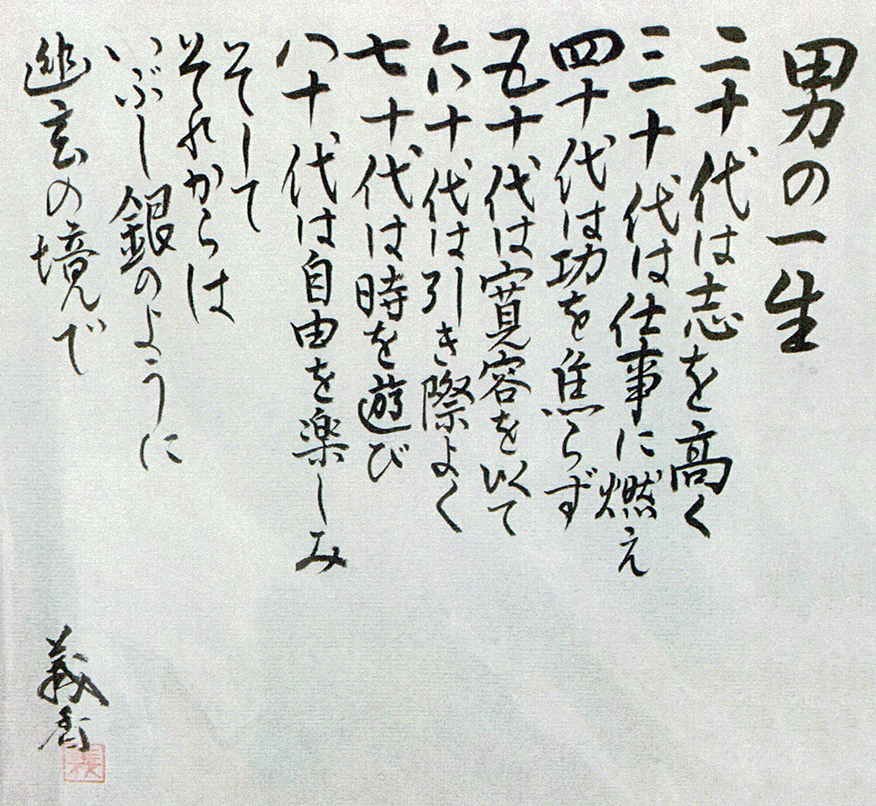 男の一生
二十代は志を高く
三十代は仕事に燃え
四十代は功を焦らず
五十代は寛容を以て
六十代は引き際よく
七十代は時を遊び
八十代は自由を楽しみ
そして
それからは
いぶし銀のように
幽玄の境で
義